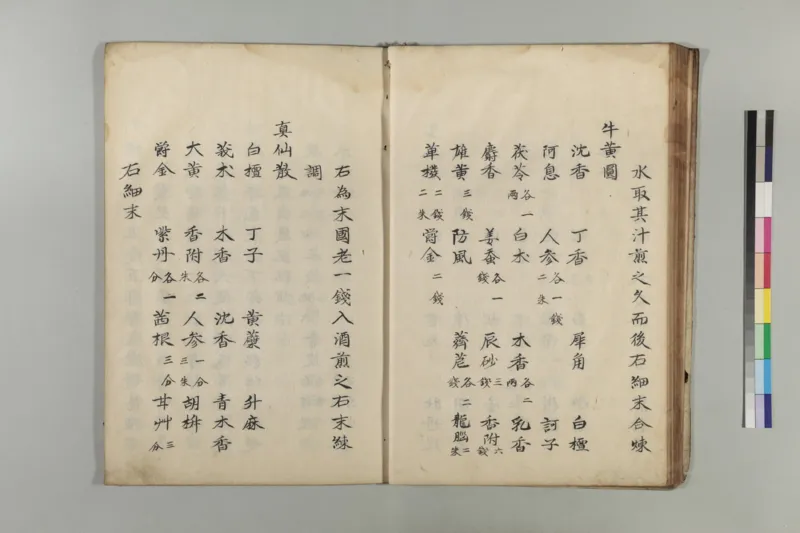 水取其汁煎之久而後右細末合煉
牛黄圓
沈香 丁香 犀角 白檀
阿息 人参各一錢二朱 訶子
茯苓各一両 白朮 木香各二両 乳香
麝香 姜蚕各一錢 辰砂三錢 香附六錢
雄黄三錢 防風 薺苨各二錢 龍脳二朱
蓽撥二錢二朱 欝金二錢
右為末國老一錢入酒煎之右末煉
調
真仙散
白檀 丁子 黄蘗 升麻
莪朮 木香 沈香 青木香
大黄 香附各二朱 人参一分三朱 胡椒
欝金 紫丹各一分 茜根三分 甘艸三分
右細末